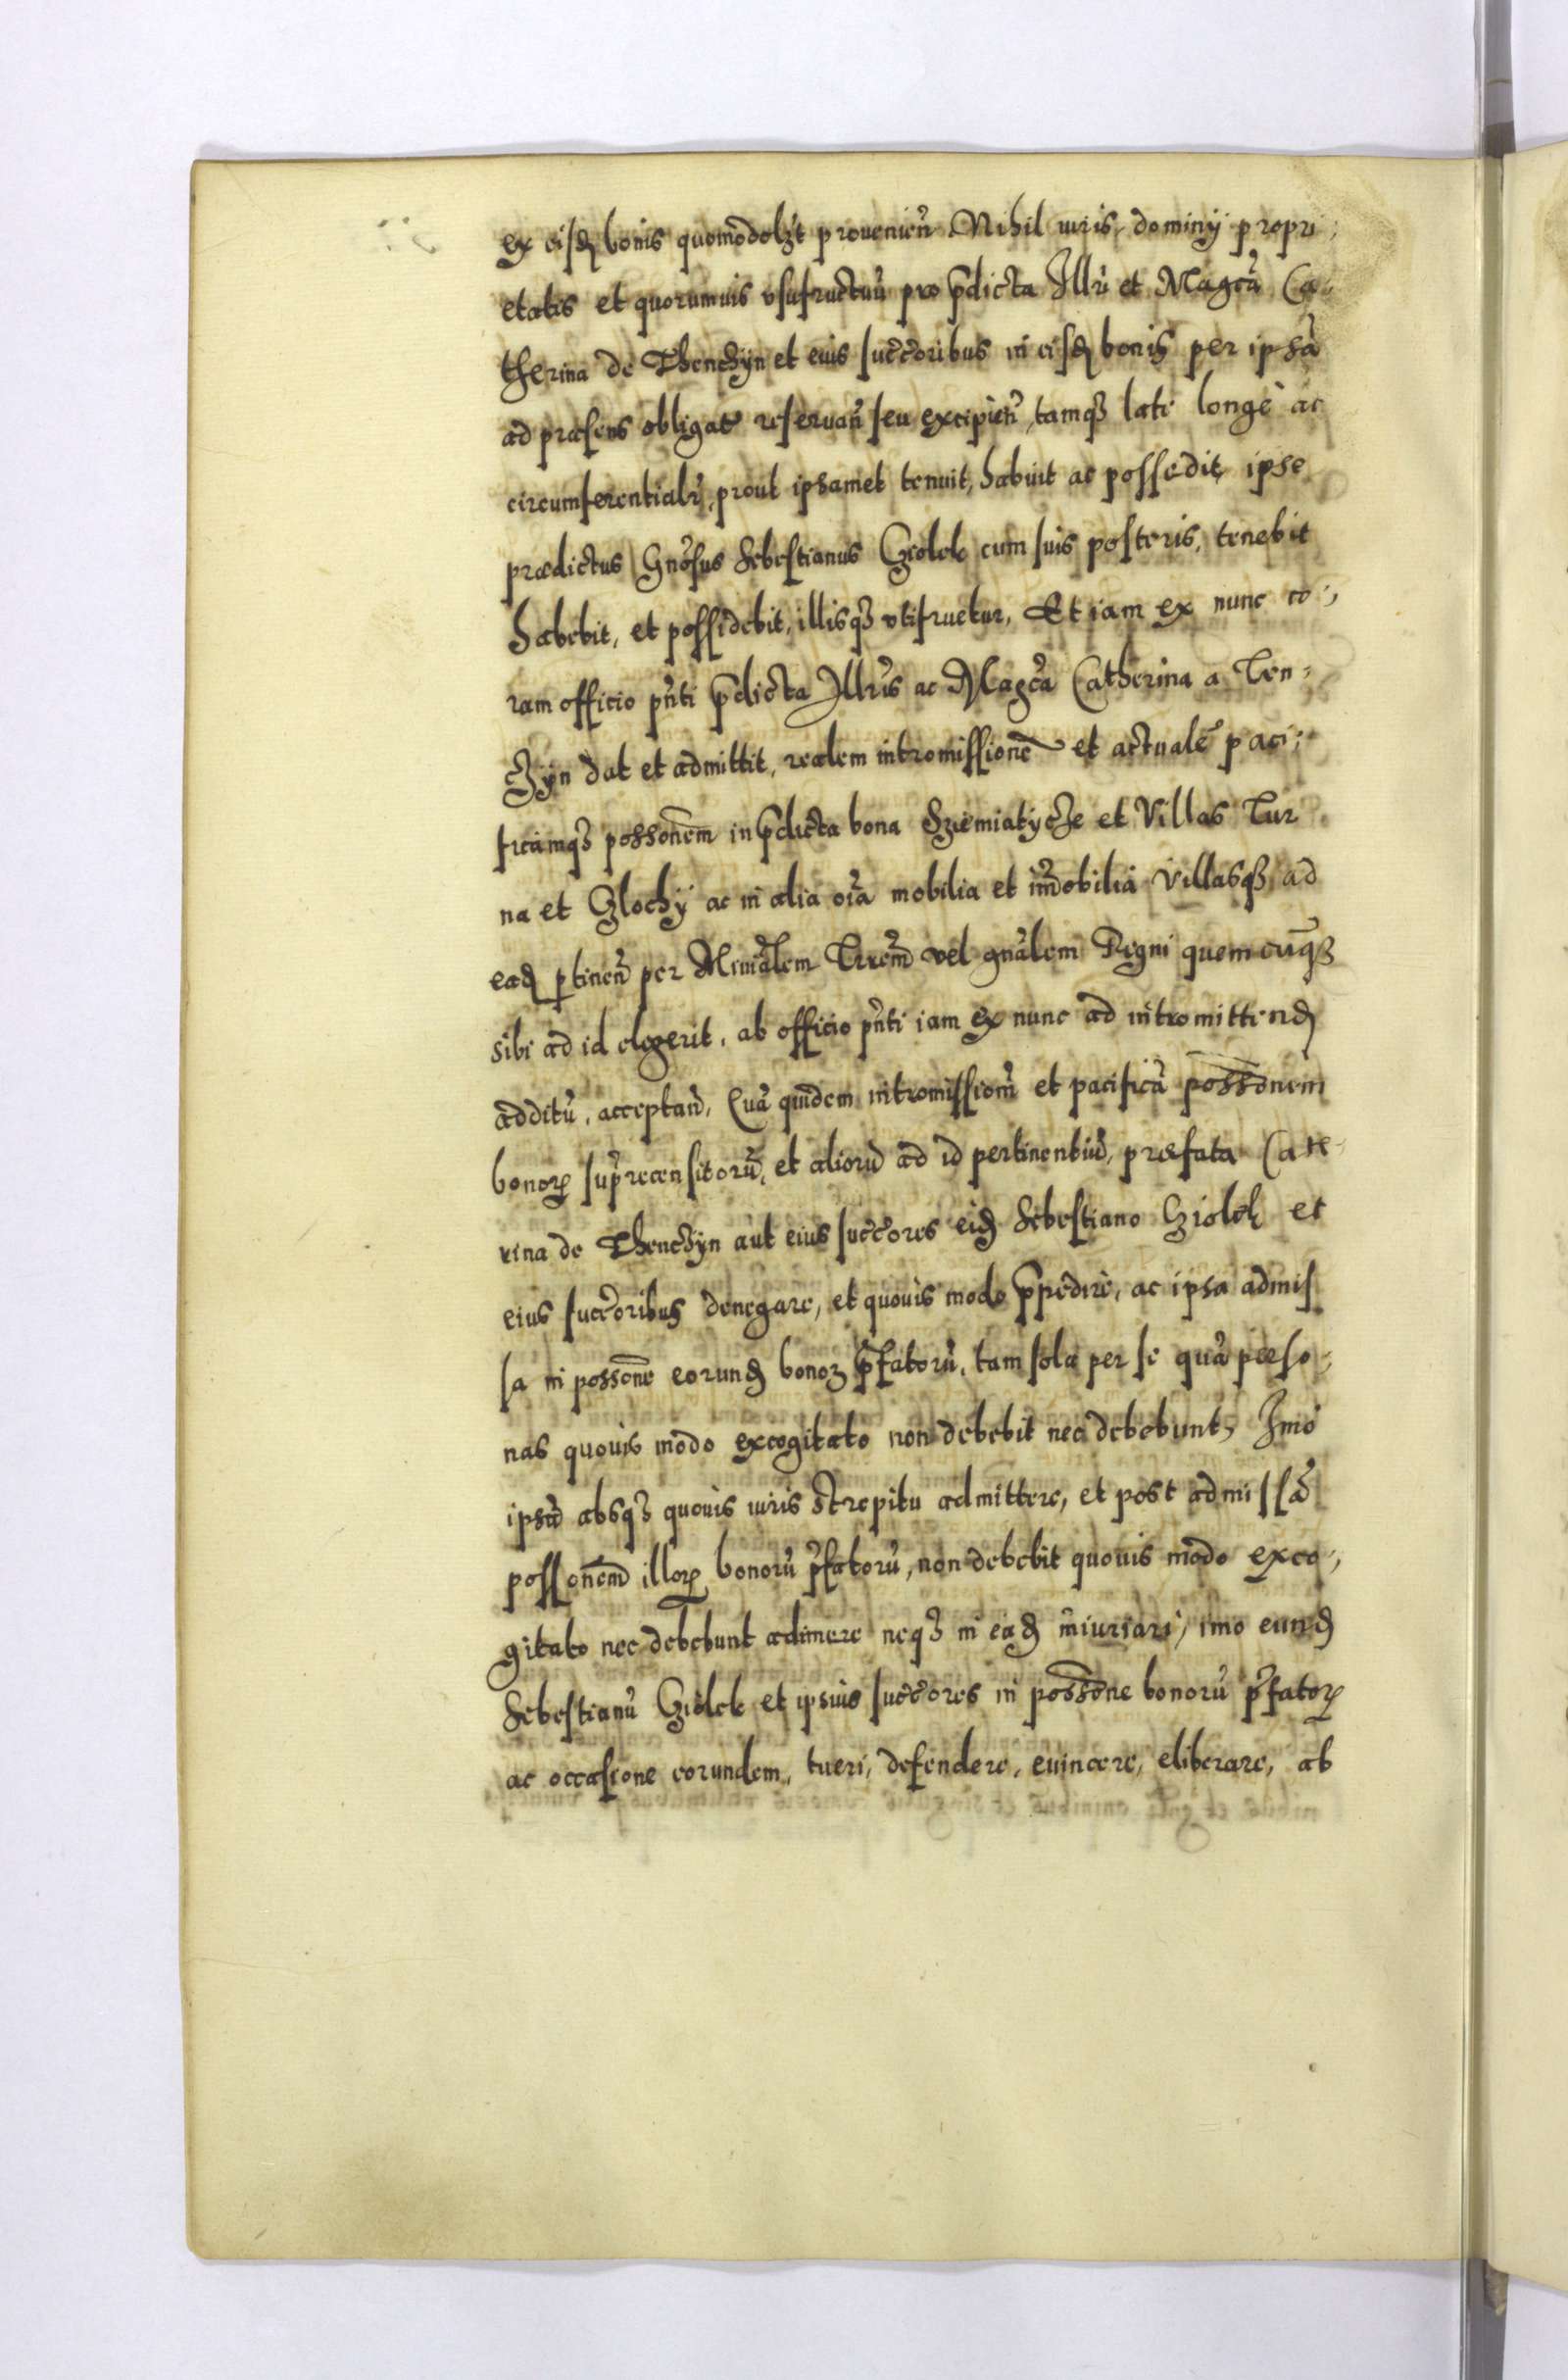 ex eisđ bonis quomodolȝt provenien̄ Nihil iuris, dominÿ propri,
etatis et quorumuis vsufructuū pro p̄dicta Illri et Magcā Ca,
therina de Thenchÿn et eius succ̄oribus in eisđ bonis per ipsā
ad præsens obligat̄ reseruan̄ seu excipien̄, tamqȝ late longè ac
circumferentialr̄, prout ipsamet tenuit, habuit ac possedit, ipse
prædictus Gnōsus Sebestianus Gziolek cum suis posteris, tenebit
habebit, et possidebit, illisqȝ vtifruetur, Et iam ex nunc co,
ram officio pn̄ti p̄dicta Illr̄is ac Magcā Catherina a Ten,
czÿn dat et admittit, realem intromissionē et actualē paci,
ficāmqȝ possonēm in p̄dicta bona Sziemiatÿcze et Villas Tur
na et Czlochÿ ac in alia oīa mobilia et im̄obilia Villasqȝ ad
eađ ptinen̄ per Ministālem Trrēm vel gnālem Regni quemcūqȝ
sibi ad id elegerit, ab officio pn̄ti iam ex nunc ad intromittenđ
additū, acceptan̄, Quā quidem intromissionē et pacificā possonēm
bonoꝝ sup̄recensitorū, et aliorū ad id pertinentiū, præfata Cate,
rina de Thenczÿn aut eius succ̄ores eiđ Sebestiano Gziolek et
eius succ̄oribus denegare, et quouis modo p̄pedire, ac ipsa admis
sa in possonē eorunđ bonoꝝ p̄fatorū, tam sola per se quā perso,
nas quouis modo excogitato non debebit nec debebunt, Imò
ipsū absqȝ quouis iuris strepitu admittere, et post admissā
possonēm illoꝝ bonorū p̄fatorū, non debebit quouis modo exco,
gitato nec debebunt adimere neqȝ in eađ iniuriari, imo eunđ
Sebestianū Gziolek et ipsius succ̄ores in possonē bonorū p̄fatoꝝ
ac occasione eorundem, tueri, defendere, euincere, eliberare, ab